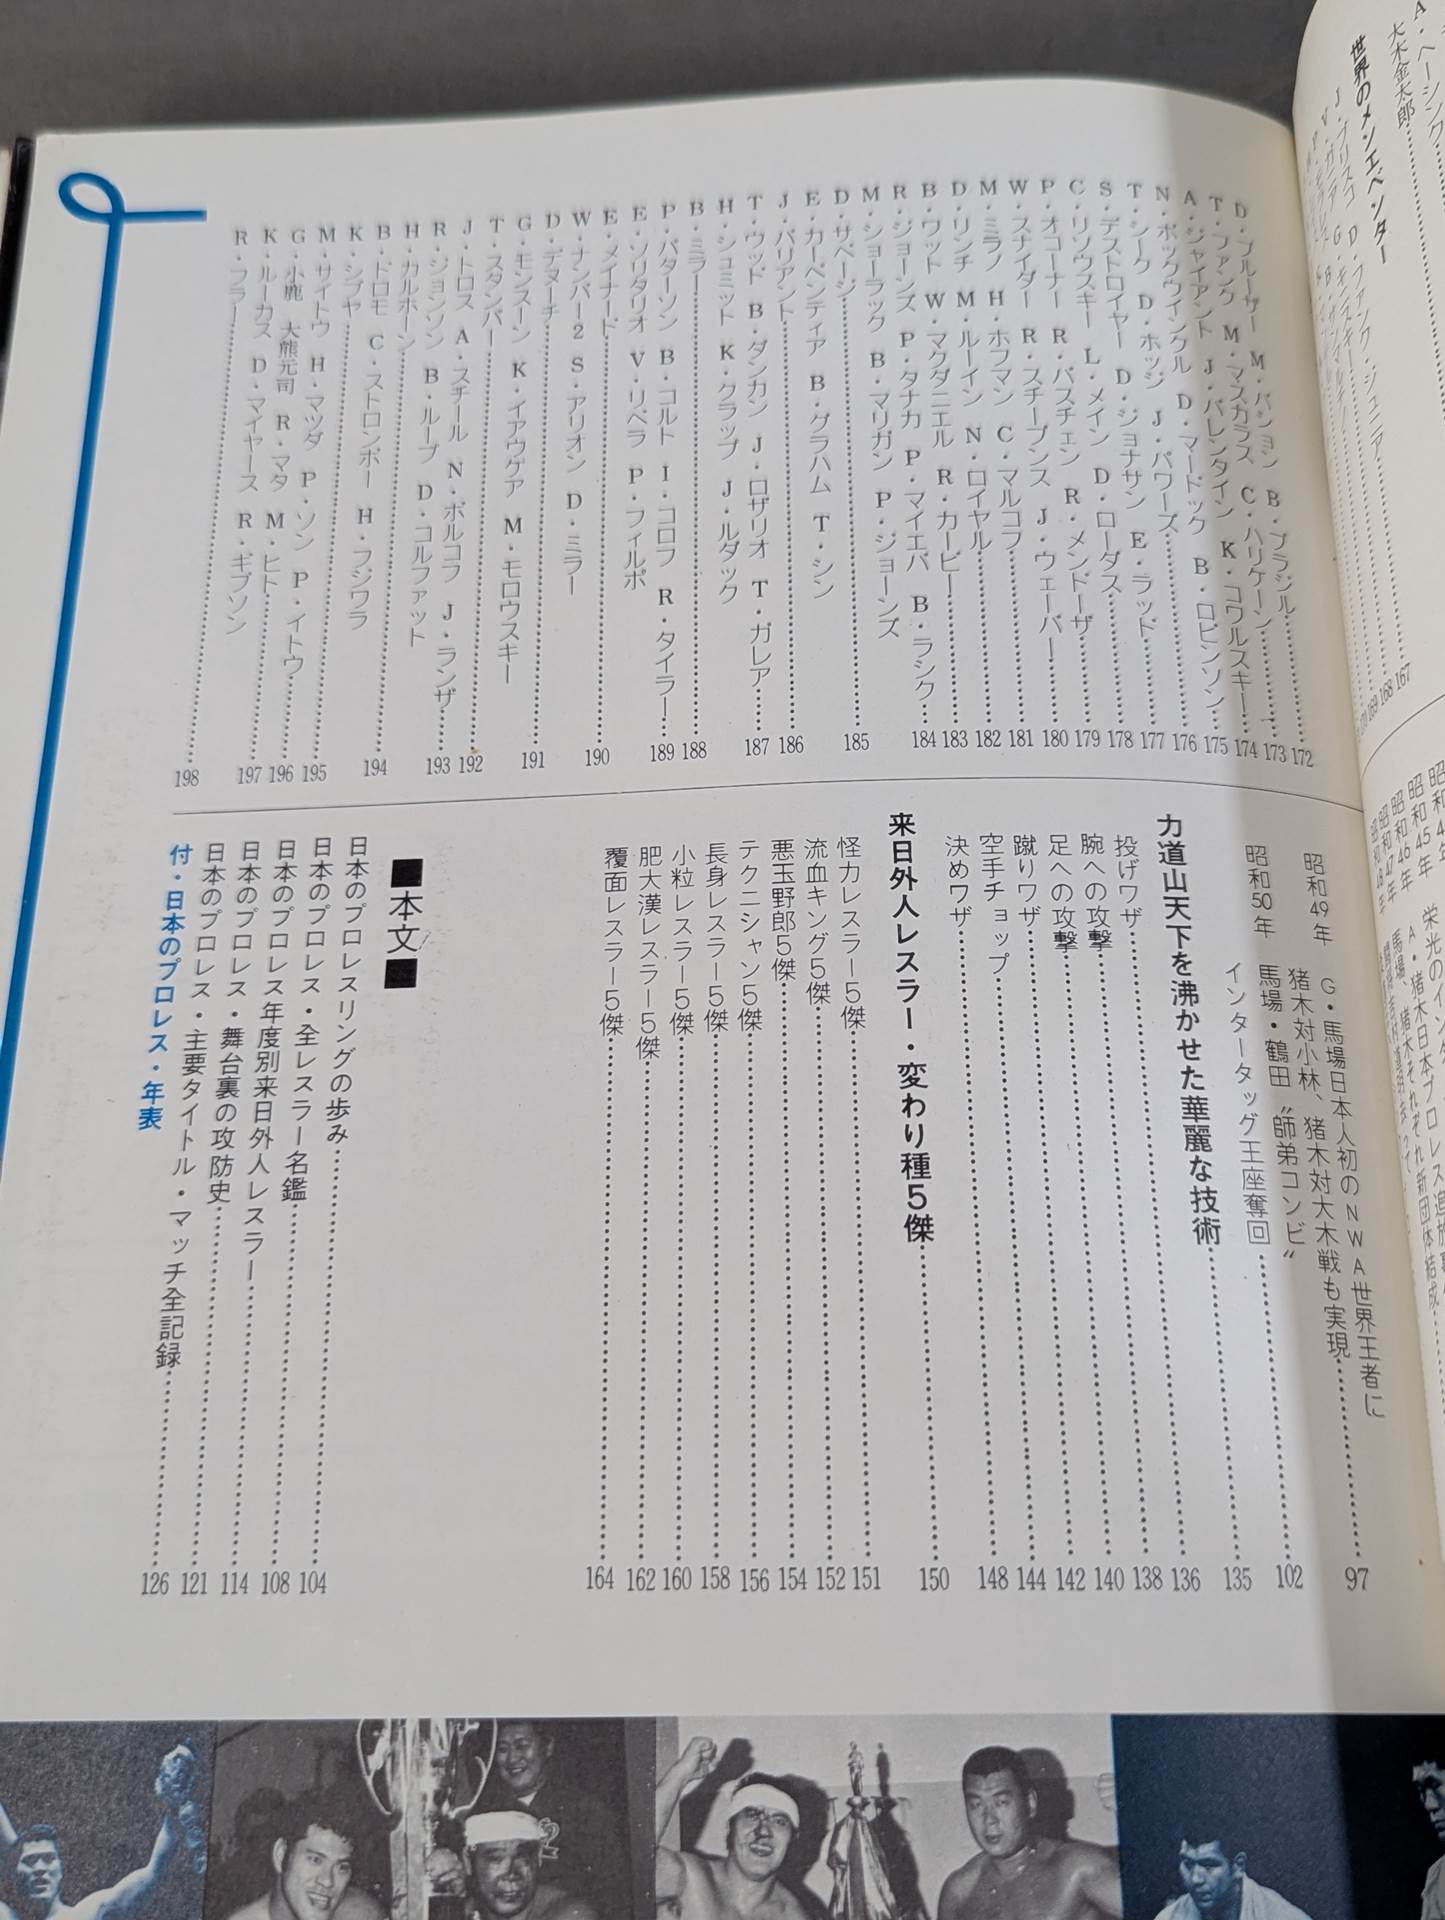 世界のメンエベンター
大木金太郎
D・ブルーザー M・バション B・ブラジル……172
T・ファンク M・マスカラス C・ハリケーン……173
A・ジャイアント J・バレンタイン K・コワルスキー……174
N・ボックウィンクル D・マードック B・ロビンソン……175
T・シーク D・ホッジ J・パワーズ……176
S・デストロイヤー D・ジョナサン E・ラッド……177
C・リソウスキー L・メイン D・ローダス……178
P・オコーナー R・バスチェン R・メンドーサ……179
W・スナイダー R・スチーブンス J・ウェーバー……180
M・ミラノ H・ホフマン C・マルコフ……181
D・リンチ M・ルーイン N・ロイヤル……182
B・ワット W・マクダニエル R・カービー……183
R・ジョーンズ P・タナカ P・マイエバ B・ラシク……184
M・ショーラック B・マリガン P・ジョーンズ
D・サベージ……185
E・カーペンティア B・グラハム T・シン
J・バリアント……186
T・ウッド B・ダンカン J・ロザリオ T・ガレア……187
H・シュミット K・クラップ J・ルダック
B・ミラー……188
P・パターソン B・コルト I・コロフ R・タイラー……189
E・ソリタリオ V・リベラ P・フィルポ
E・メイナード……190
W・ナンバー2 S・アリオン D・ミラー
D・デヌーチ……191
G・モンスーン K・イアウケア M・モロウスキー
T・スタンパー……192
J・トロス A・スチール N・ボルコフ J・ランザ……193
R・ジョンソン B・ループ D・コルファット
H・カルホーン……194
B・ドロモ C・ストロンボー H・フジワラ
K・シブヤ
M・サイトウ H・マツダ P・ソン P・イトウ……195
G・小鹿 大熊元司 R・マタ M・ヒト……196
K・ルーカス D・マイヤース R・ギブソン……197
R・フラー……198
昭和49年 G・馬場日本人初のNWA世界王者に
猪木対小林、猪木対大木戦も実現……97
昭和50年 馬場・鶴田〝師弟コンビ〟
インタータッグ王座奪回……102
力道山天下を沸かせた華麗な技術……135
投げワザ……136
腕への攻撃……138
足への攻撃……140
蹴りワザ……142
空手チョップ……144
決めワザ……148
来日外人レスラー・変わり種5傑……150
怪力レスラー5傑……151
流血キング5傑……152
悪玉野郎5傑……154
テクニシャン5傑……156
長身レスラー5傑……158
小粒レスラー5傑……160
肥大漢レスラー5傑……162
覆面レスラー5傑……164
■本文■
日本のプロレスリングの歩み……104
日本のプロレス・全レスラー名鑑……108
日本のプロレス年度別来日外人レスラー……114
日本のプロレス・舞台裏の攻防史……121
日本のプロレス・主要タイトル・マッチ全記録……126
付・日本のプロレス・年表